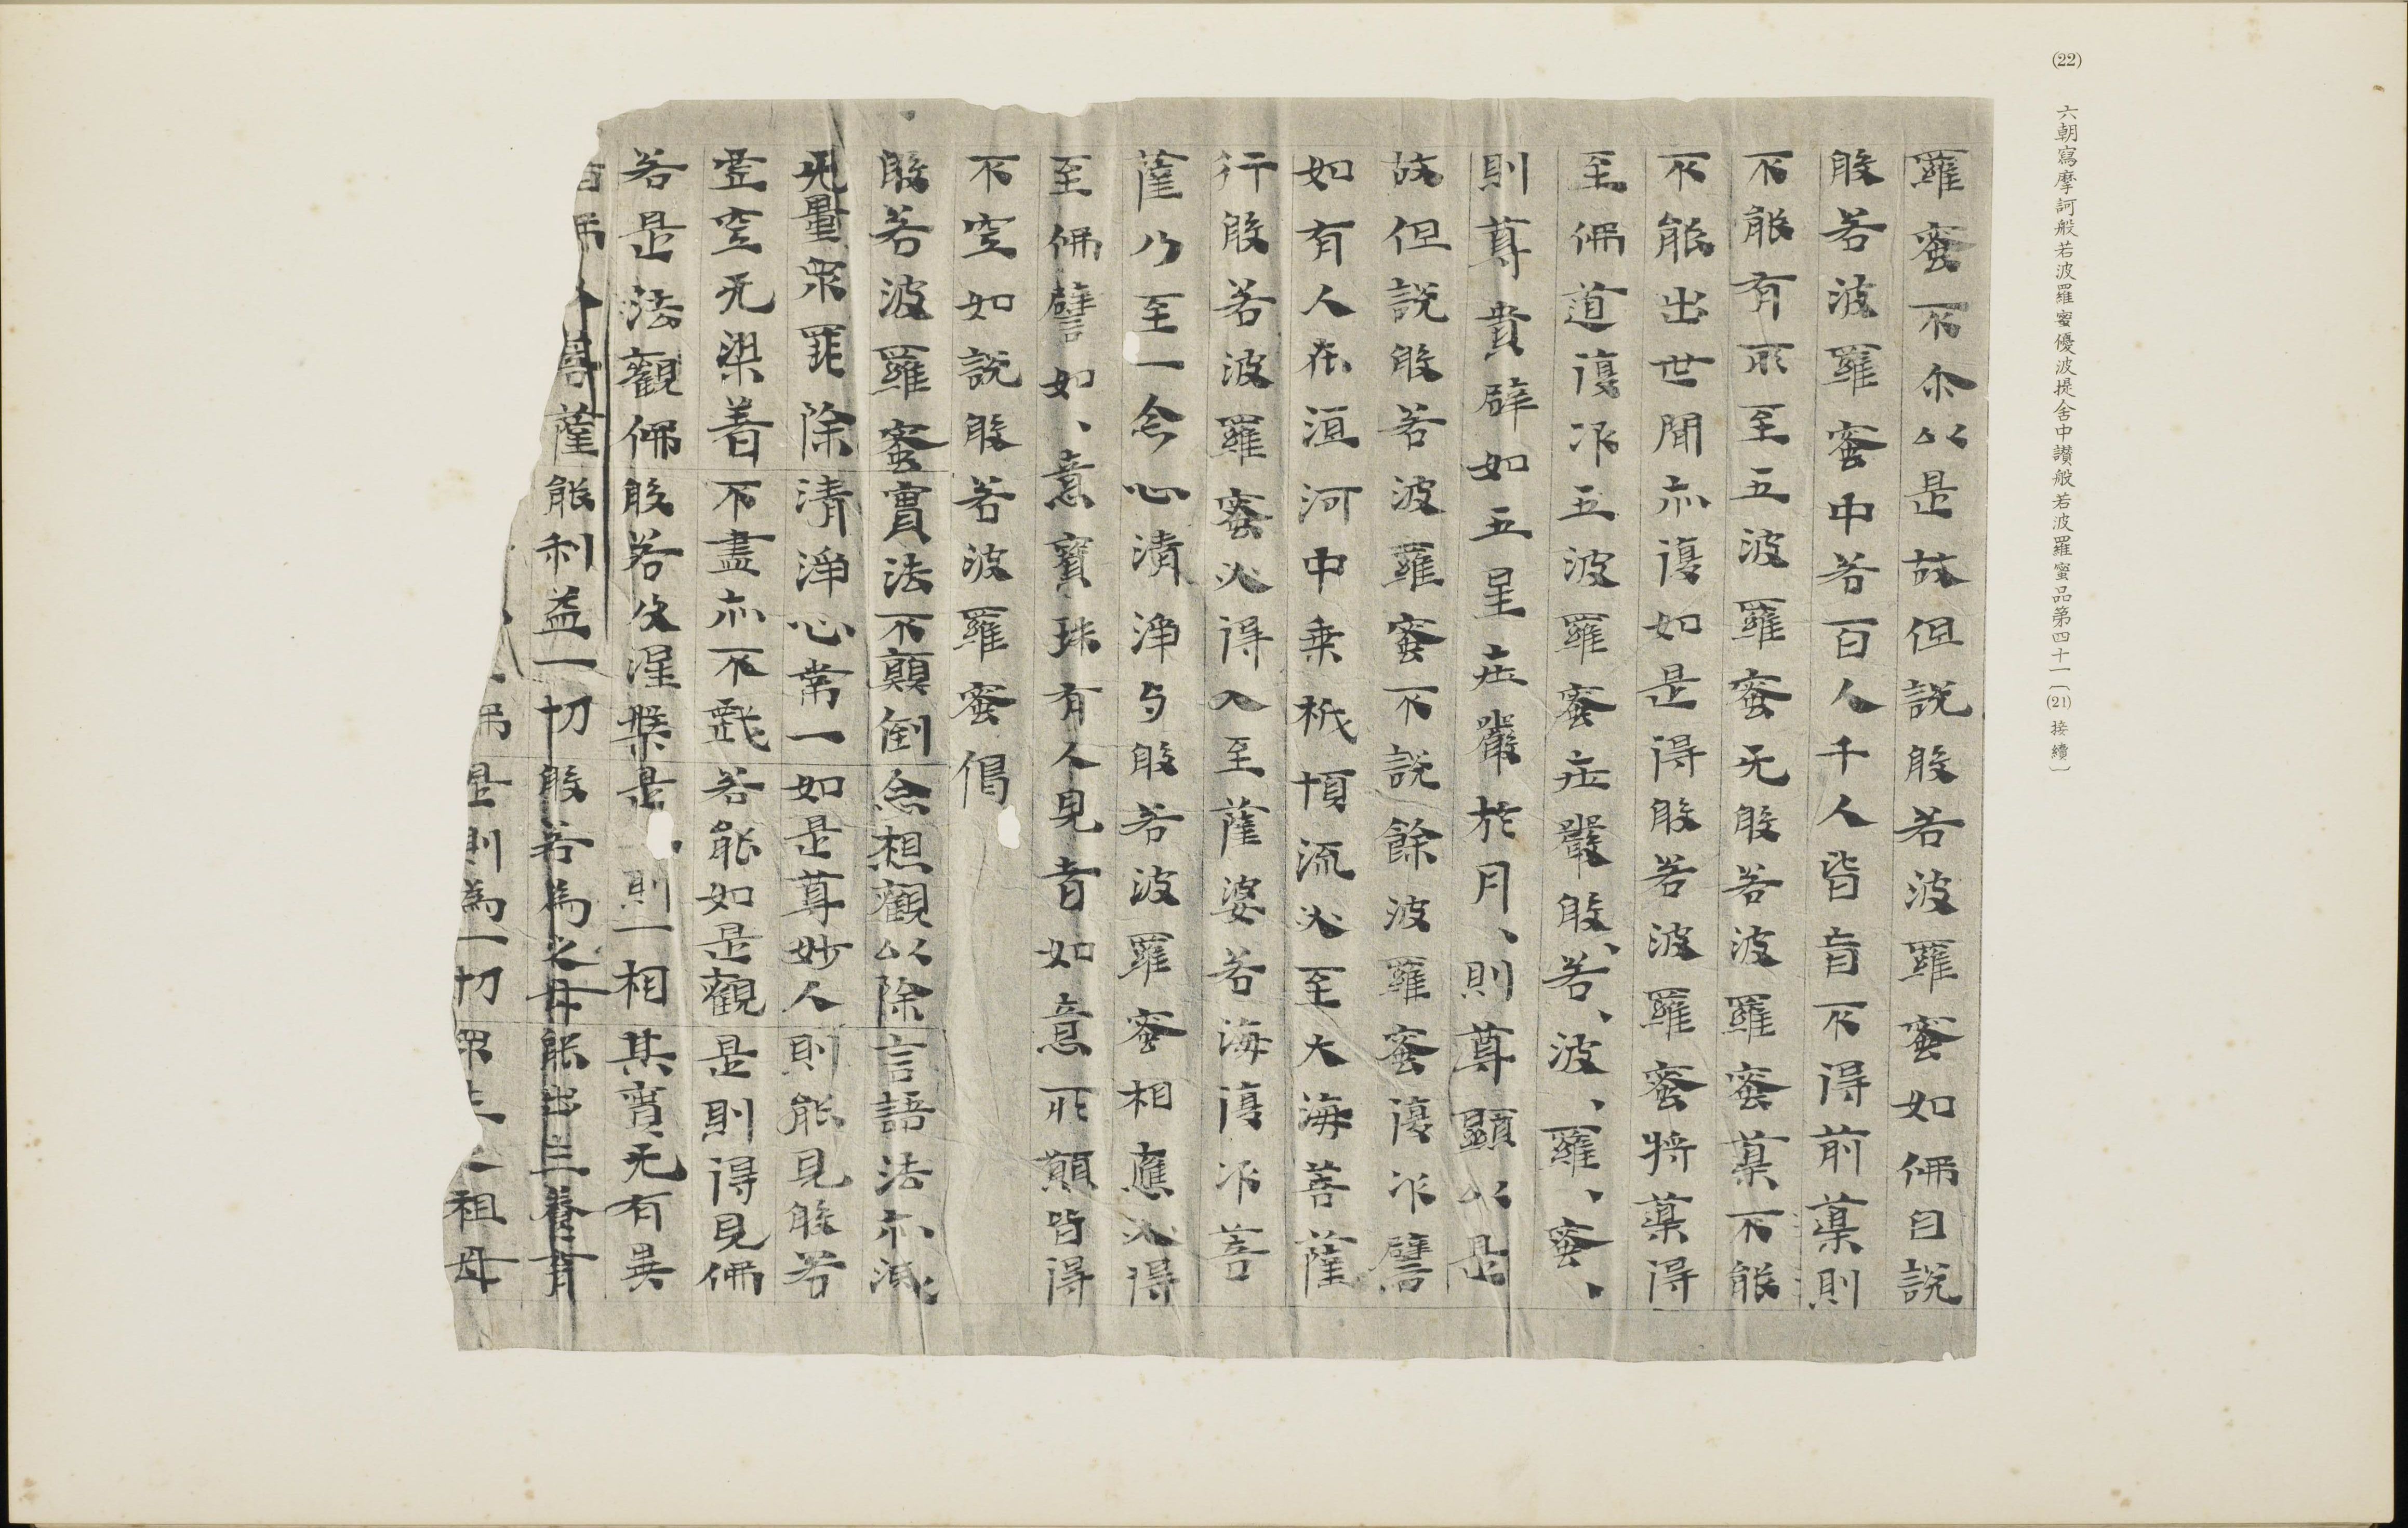 (22)
六朝寫摩訶般若波羅蜜優波提舍中讚般若波羅蜜品第四十一〔(21)接續〕
羅蜜不尒以是故但說般若波羅蜜如佛自說
般若波羅蜜中若百人千人皆盲不得前菓則
不能有所至五波羅蜜无般若波羅蜜菓不能
不能出世間亦復如是得般若波羅蜜將菓得
至佛道復次五波羅蜜庄嚴般、若、波、羅、蜜、
則尊貴辟如五星庄嚴於月、則尊顯以是
故但說般若波羅蜜不說餘波羅蜜復次譬
如有人在洹河中乗栰順流必至大海菩薩
行般若波羅蜜必得入至薩婆若海復次菩
薩乃至一念心清淨与般若波羅蜜相應必得
至佛譬如、意寳珠有人見者如意所願皆得
不空如說般若波羅蜜偈
般若波羅蜜實法不顛倒念想觀以除言語法亦滅
无量衆罪除清淨心常一如是尊妙人則能見般若
虚空无染着不盡亦不戲若能如是觀是則得見佛
若是法觀佛般若及涅槃是則一相其實无有異
薩能利益一切般若為之母能出三養育
是則為一切祖母